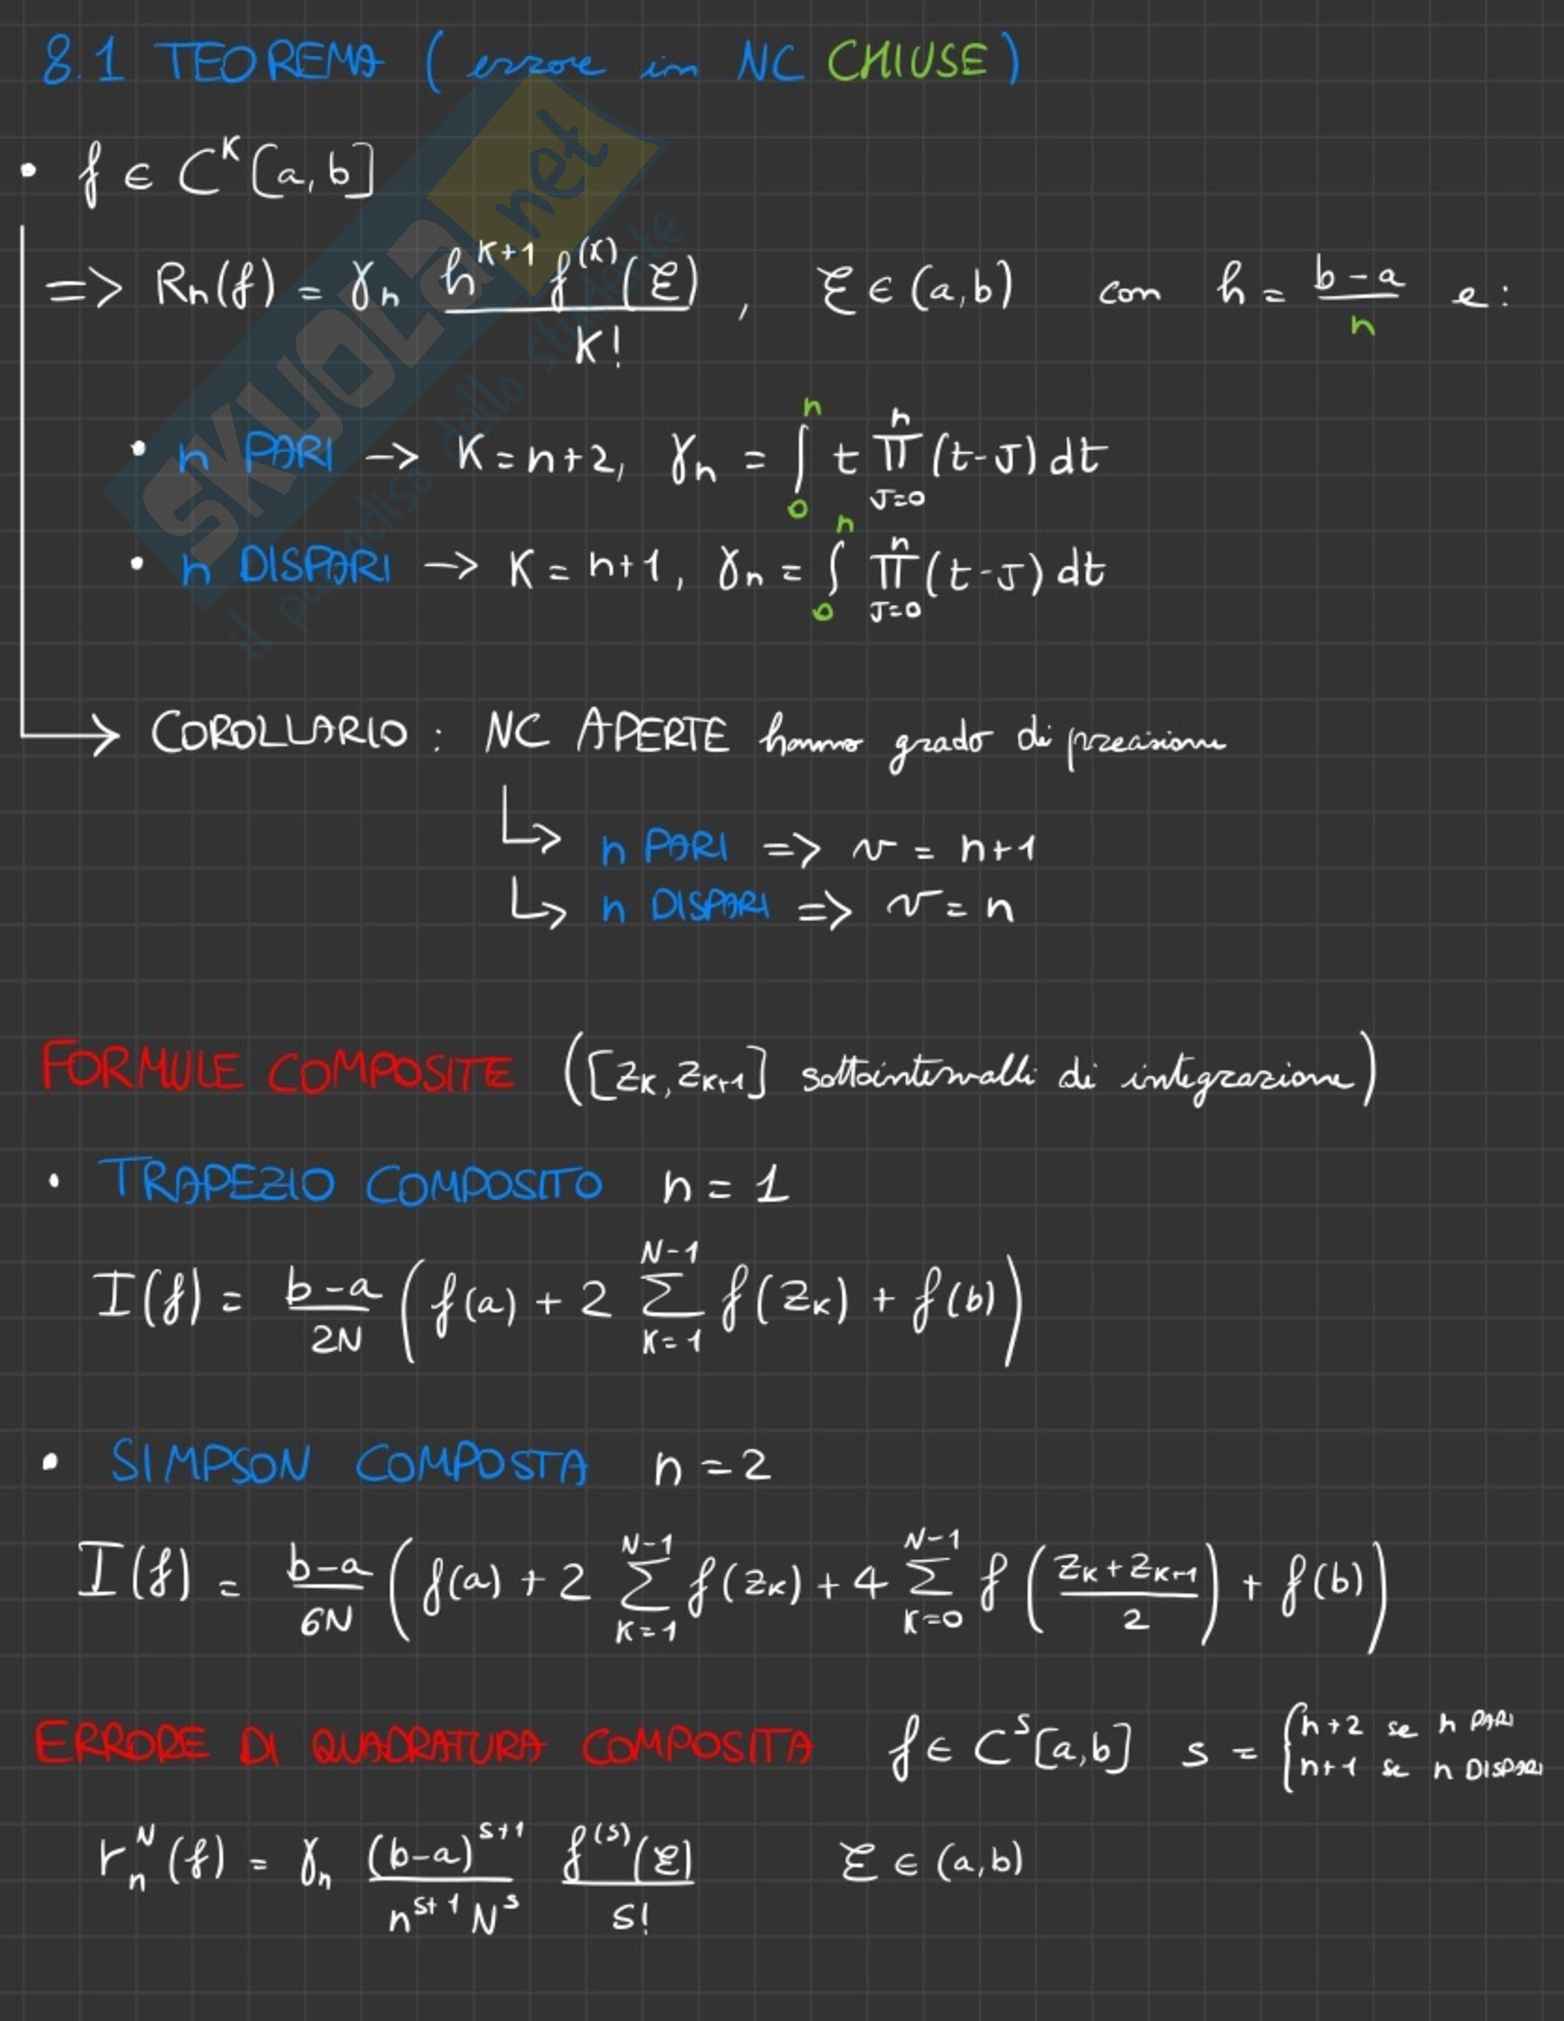 8.1 TEOREMA (errore in NC CHIUSE)
• f ∈ C^K [a,b]
=> Rn(f) = γn h^{K+1} f^{(K)}(ξ) / K! , ξ ∈ (a,b) con h = (b-a)/n e:
• n PARI -> K = n+2, γn = ∫_0^n t ∏_{J=0}^n (t-J) dt
• n DISPARI -> K = n+1, γn = ∫_0^n ∏_{J=0}^n (t-J) dt
-> COROLLARIO : NC APERTE hanno grado di precisione
↳ n PARI => ν = n+1
↳ n DISPARI => ν = n
FORMULE COMPOSITE ([z_K, z_{K+1}] sottointervalli di integrazione)
• TRAPEZIO COMPOSITO n = 1
I(f) = (b-a)/2N ( f(a) + 2 ∑_{K=1}^{N-1} f(z_K) + f(b) )
• SIMPSON COMPOSTA n = 2
I(f) = (b-a)/6N ( f(a) + 2 ∑_{K=1}^{N-1} f(z_K) + 4 ∑_{K=0}^{N-1} f( (z_K + z_{K+1})/2 ) + f(b) )
ERRORE DI QUADRATURA COMPOSITA f ∈ C^S [a,b] s = { n+2 se n PARI
n+1 se n DISPARI
r_n^N (f) = γn (b-a)^{s+1} / n^{s+1} N^s f^{(s)}(ξ) / s! ξ ∈ (a,b)
SKUOLA.net
il paradiso dello studente